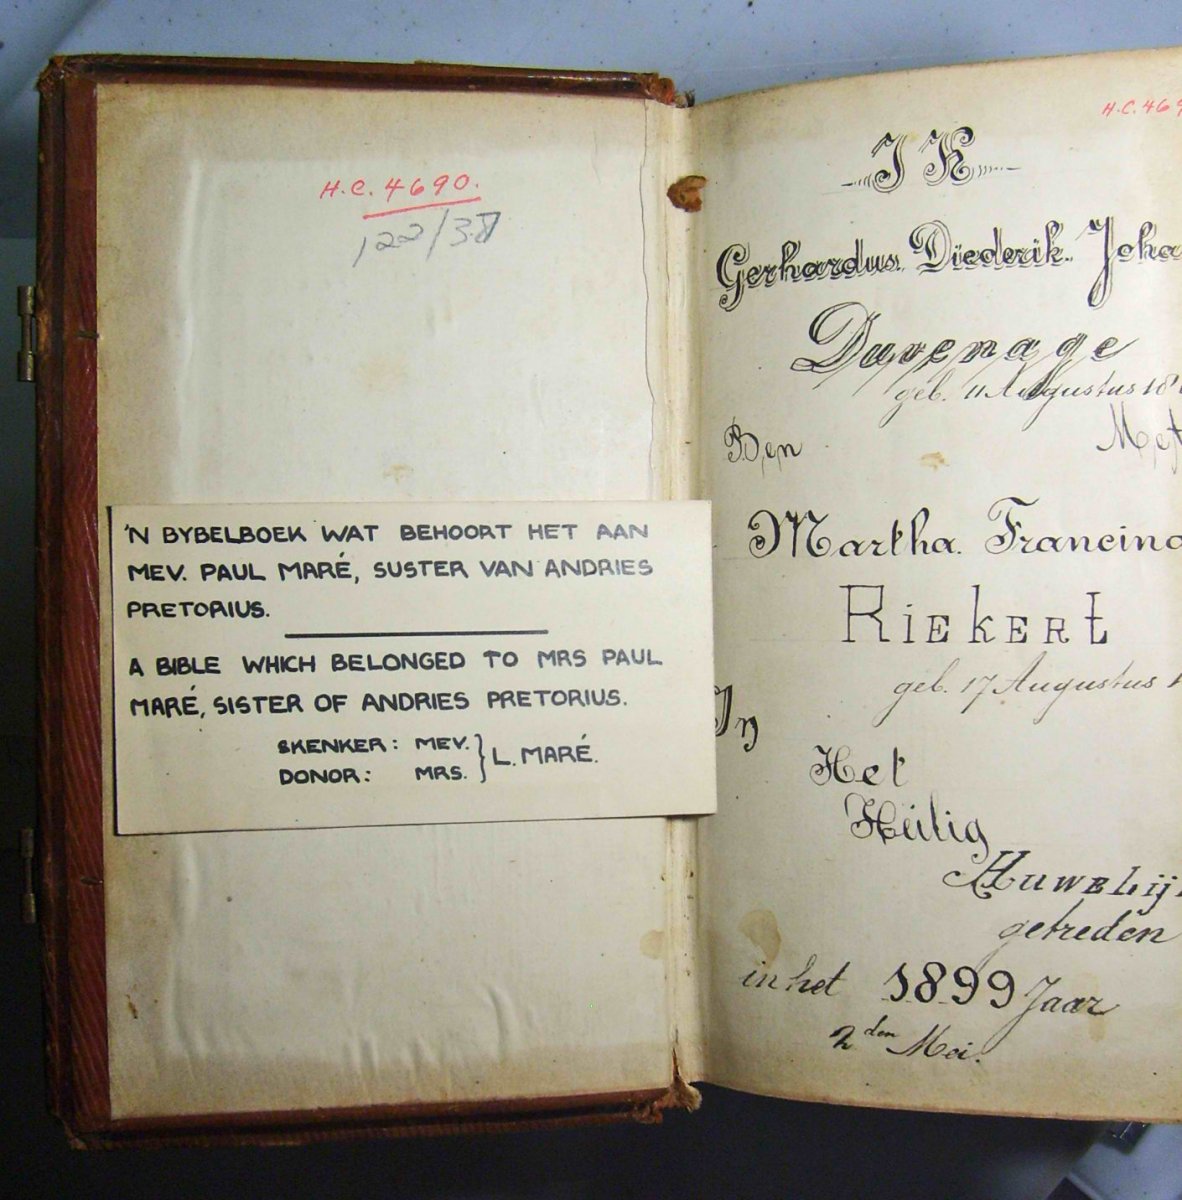 H.C. 4690.
122/37
'N BYBELBOEK WAT BEHOORT HET AAN
MEV. PAUL MARÉ, SUSTER VAN ANDRIES
PRETORIUS.
A BIBLE WHICH BELONGED TO MRS PAUL
MARÉ, SISTER OF ANDRIES PRETORIUS.
SKENKER: MEV. } L. MARÉ.
DONOR: MRS.
H.C. 469
IK
Gerhardus Diederik Joha
Duvenage
geb. 11 Augustus 18
Ben Met
Martha Francina
RIEKERT
geb. 17 Augustus 1
In
Het
Heilig
Huwelij
getreden
in het 1899 Jaar
2den Mei.